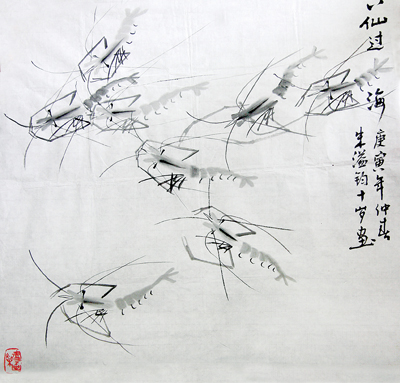 八仙过海
庚寅年仲春
朱溢钧十岁画